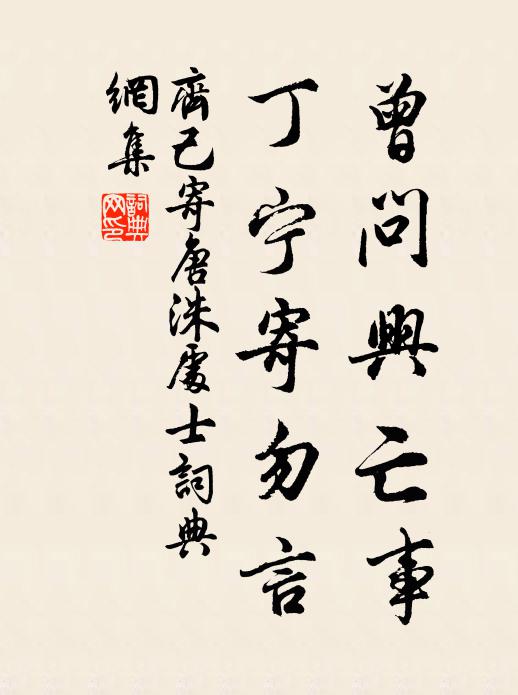 曾問興亡事
丁宁寄勿言
齊己寄唐洙處士詞典
網集
詞典网印